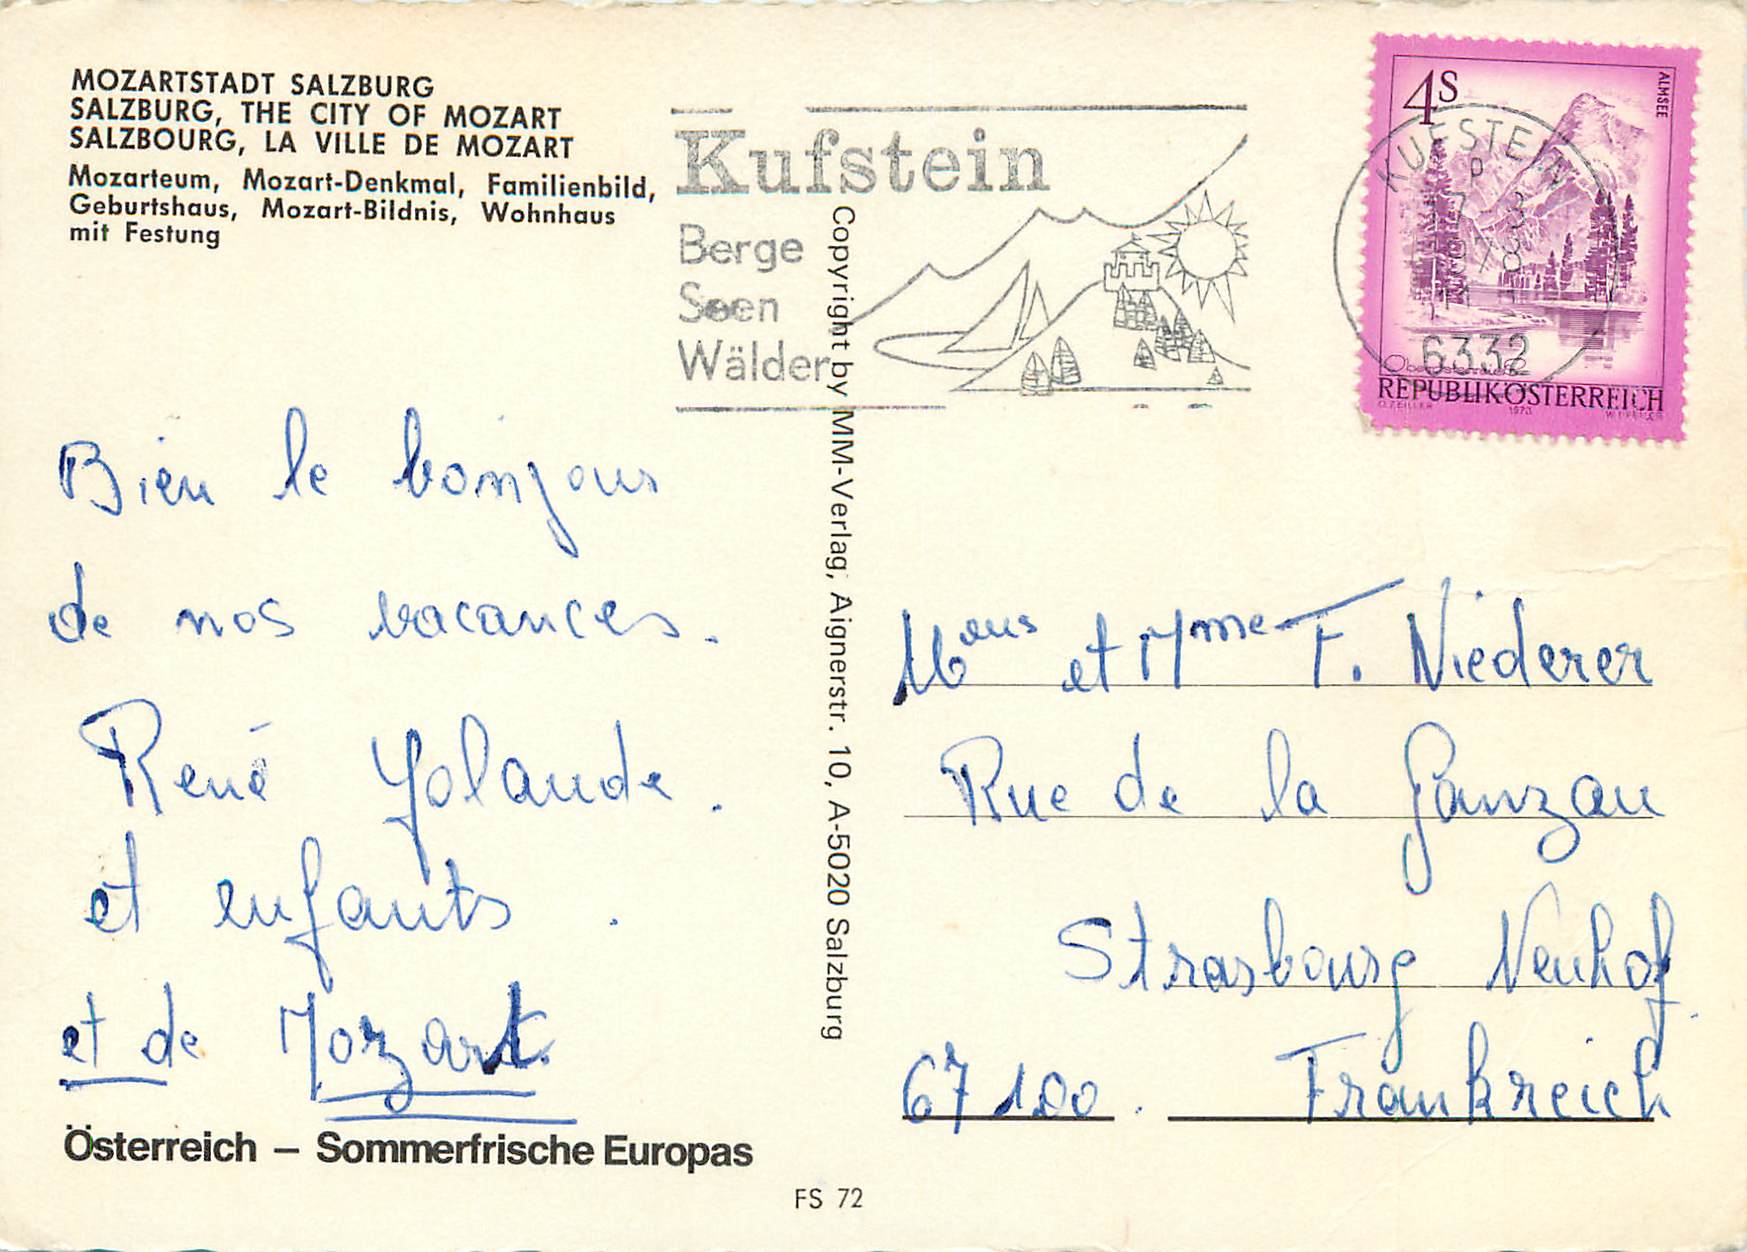 MOZARTSTADT SALZBURG
SALZBURG, THE CITY OF MOZART
SALZBOURG, LA VILLE DE MOZART
Mozarteum, Mozart-Denkmal, Familienbild,
Geburtshaus, Mozart-Bildnis, Wohnhaus
mit Festung
Kufstein
Berge
Seen
Wälder
4S
ALMSEE
KUFSTEIN
6332
REPUBLIK ÖSTERREICH
O. ZEILLER 1973
Bien le bonjour
de nos vacances.
René Yolande.
et enfants.
et de Mozart.
Österreich – Sommerfrische Europas
Copyright by MM-Verlag, Aignerstr. 10, A-5020 Salzburg
FS 72
et Mme F. Niederer
Rue de la Ganzau
Strasbourg Neuhof.
67100. Frankreich